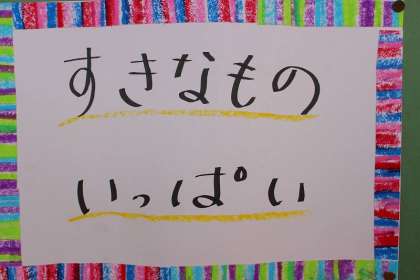 すきなもの
いっぱい